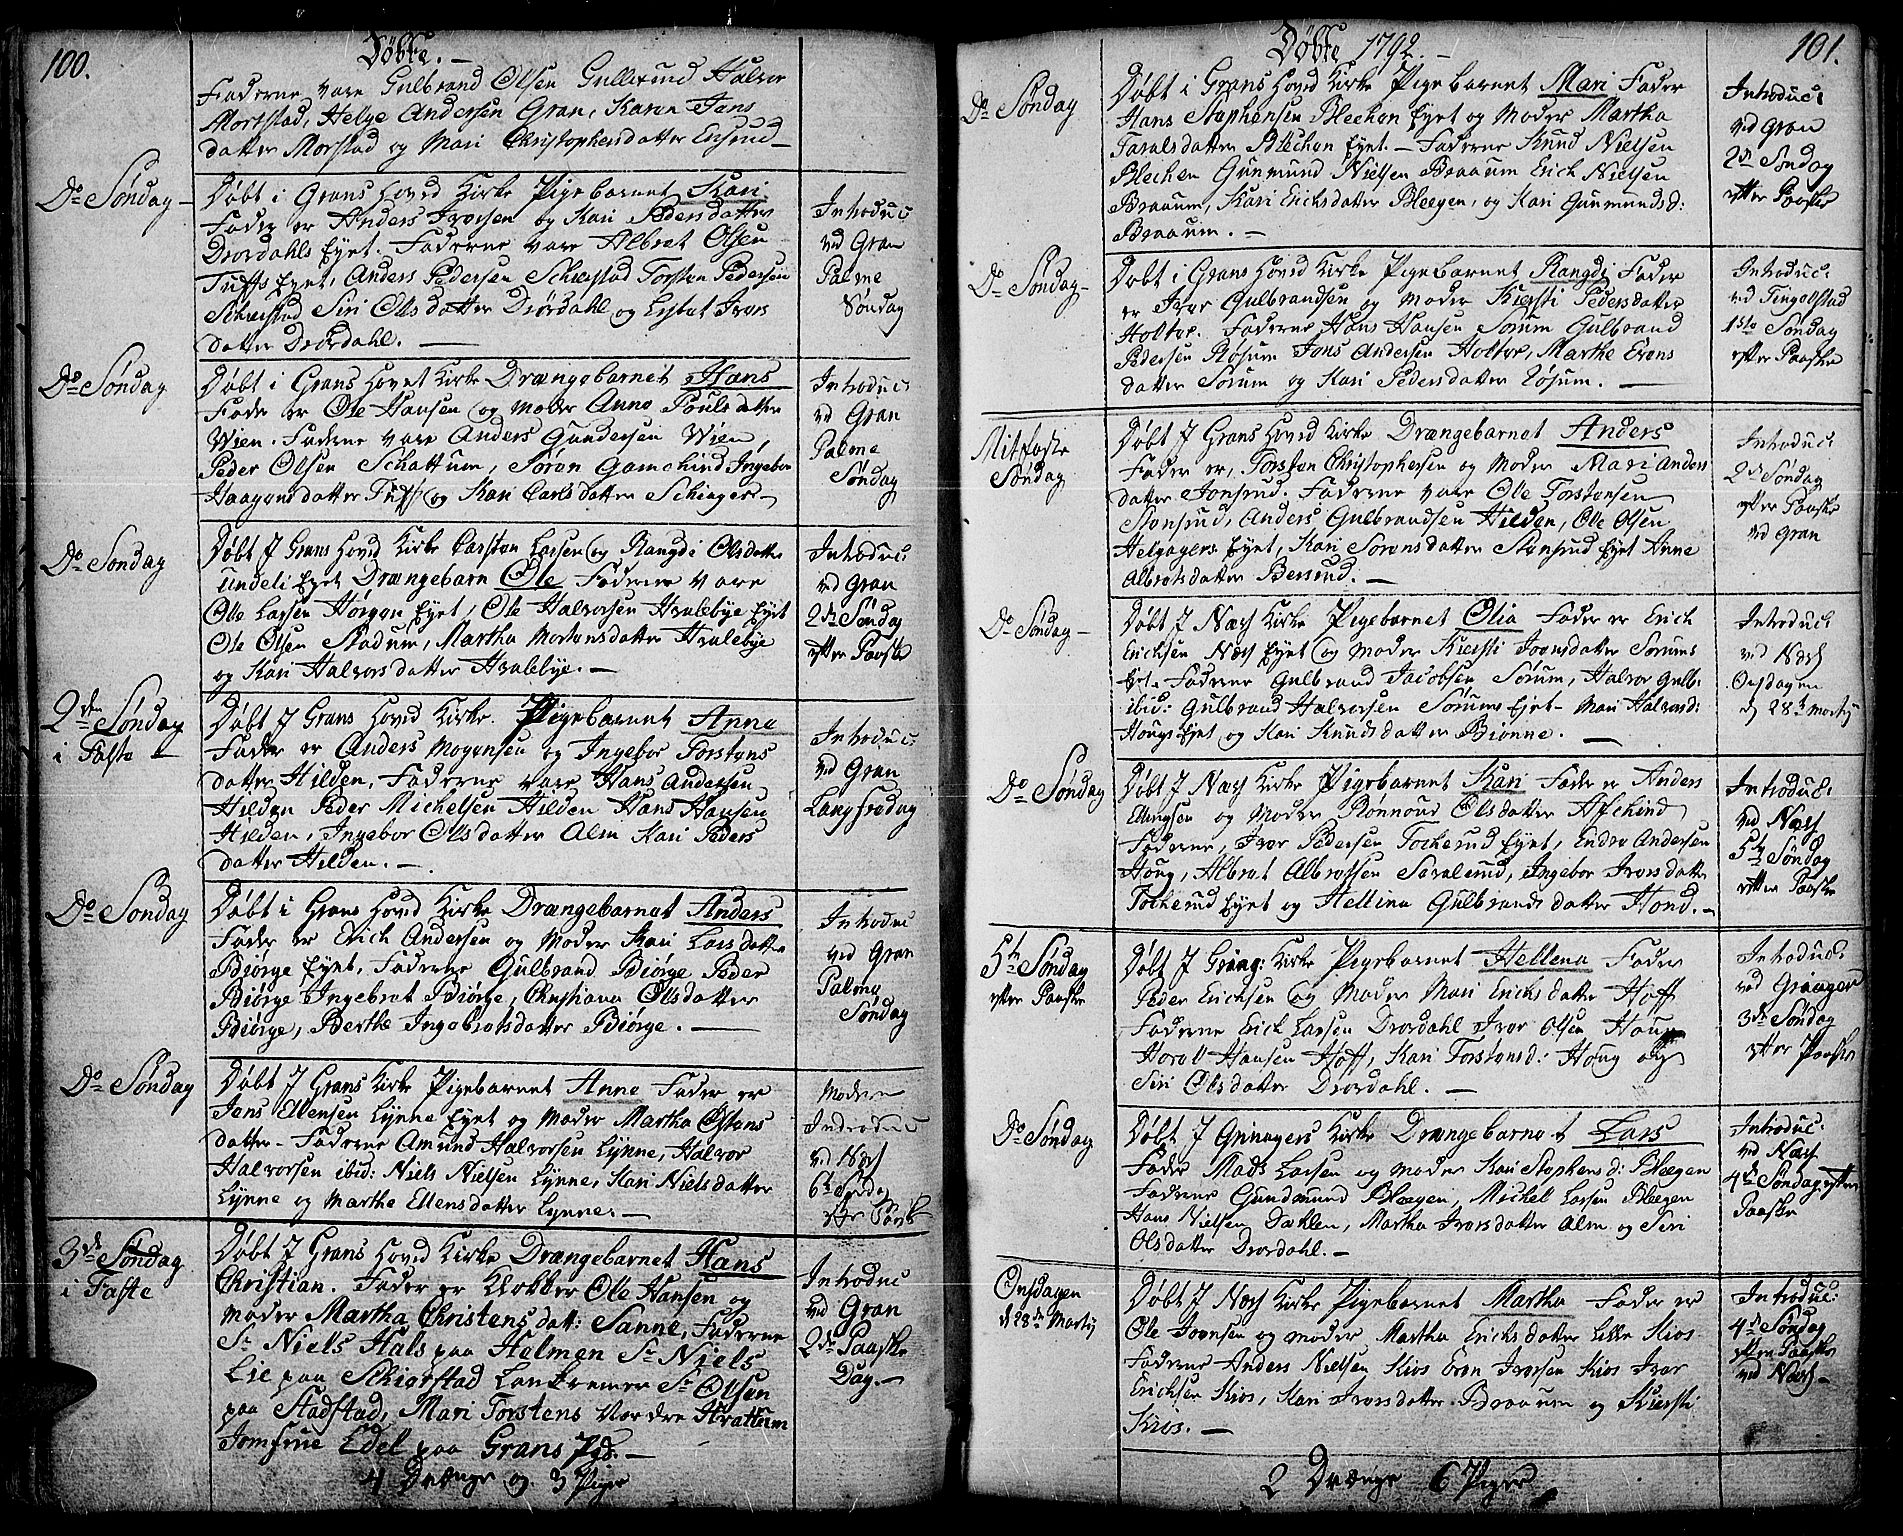 100.
Døbte. —
Faderne vare Gulbrand Olsen Gullerund Halvor
Morstad, Helge Andersen Gran, Karen Jans
datter Morstad og Mari Christophersdatter
Do Søndag —
Døbt i Grans Hovid Kirke Pigebarnet Kari
Fader er Anders Iversen og Kari Pedersdatter
Drordahls Eyet. Faderne vare Albret Olsen
Tuffs Eyet, Anders Pedersen Schiestad Torsten Pedersen
Schiestad Siri Olsdatter Drordahl og Lisbet Ivers
datter Drordahl. —
Introduc
ved Gran
Palme
Søndag
Do Søndag
Døbt i Grans Hovet Kirke Drængebarnet Hans
Fader er Ole Hansen og Moder Anne Poulsdatter
Wien. Faderne vare Anders Gundersen Wien,
Peder Olsen Schattum, Søren Gamchind Ingebor
Haagensdatter Tuff og Kari Carlsdatter Schiager —
Introduc:
ved Gran
Palme
Søndag
Do Søndag
Døbt I Grans Hovid Kirke Carsten Larsen og Rangdi Olsdatter
undeli Eyet Drængebarn Ole Faderne vare
Ole Larsen Horgen Eyet, Ole Halvorsen Hvalebye Eyet
Ole Olsen Stadum, Martha Mortensdatter Hvalebye
og Kari Halvorsdatter Hvalebye. —
Introduc:
ved Gran
2de Søndag
efter Paaske
2den Søndag
i Faste
Døbt I Grans Hovid Kirke. Pigebarnet Anne
Fader er Anders Mogensen og Ingebor Torstens
datter Hilden, Faderne vare Hans Andersen
Hilden Peder Michelsen Hilden Hans Hansen
Hilden, Ingebor Olsdatter Alm Kari Peders
datter Hilden. —
Introduc:
ved Gran
Langfredag
Do Søndag
Døbt i Grans Hovid Kirke Drængebarnet Anders
Fader er Erich Andersen og Moder Kari Larsdatter
Biørge Eyet, Faderne Gulbrand Biørge Peder
Biørge Ingebret Biørge, Christiana Olsdatter
Biørge, Berthe Ingebretsdatter Biørge. —
Introduc
ved Gran
Palme
Søndag
Do Søndag
Døbt I Grans Kirke Pigebarnet Anne Fader er
Jens Ellensen Lynne Eyet og Moder Martha Ostens
datter — Faderne Amund Halvorsen Lynne, Halvor
Halvorsen ibid: Niels Nielsen Lynne, Kari Nielsdatter
Lynne og Marthe Ellensdatter Lynne. —
Moderen
Introduc
ved Næss
6te Søndag
efter Paaske
3de Søndag
i Faste
Døbt I Grans Hovid Kirke Drængebarnet Hans
Christian. Fader er Klokker Ole Hansen og
Moder Martha Christensdatt: Sanne, Faderne
Sr Niels Hals paa Helmen Sr Niels
Lie paa Schiørstad Sr Olsen
paa Stadstad, Mari Torstens Nordre Hvattum
Jomfrue Edel paa Grans Pgd. —
Introduc
ved Gran
2de Paaske
Dag. —
4 Drænge og 3 Piger
Døbte 1792. —
101.
Do Søndag
Døbt i Grans Hovid Kirke Pigebarnet Mari Fader
Hans Stephensen Blechen Eyet og Moder Martha
Taralsdatter Blechen Eyet. — Faderne Knud Nielsen
Blechen Gunmund Nielsen Braaum Erich Nielsen
Braaum, Kari Erichsdatter Bleegen, og Kari Gunmundsd:
Braaum. —
Introduc:
ved Gran
2de Søndag
efter Paaske
Do Søndag —
Døbt i Grans Hovid Kirke Pigebarnet Rangdi Fader
er Iver Gulbrandsen og Moder Kiersti Pedersdatter
Holter. Faderne Hans Hansen Sorum Gulbrand
Pedersen Røsum Jens Andersen Holter, Marthe Evens
datter Sorum og Kari Pedersdatter Løsum. —
Introduc:
ved Tingelstad
1ste Søndag
efter Paaske
Mitfaste
Søndag
Døbt I Grans Hovid Kirke Drængebarnet Anders
Fader er, Torsten Christophersen og Moder Mari Anders
datter Jonsrud. Faderne vare Ole Torstensen
Stensrud, Anders Gulbrandsen Hilden, Ole Olsen
Helgagers Eyet, Kari Sorensdatter Stensrud Eyet Anne
Albretsdatter Bersrud. —
Introduc:
2de Søndag
efter Paaske
ved Gran
Do Søndag —
Døbt I Næss Kirke Pigebarnet Olia Fader er Erich
Erichsen Næss Eyet og Moder Kiersti Iversdatter Sorums
Eyet. Faderne Gulbrand Jacobsen Sorum, Halvor Gulb:
ibid: Gulbrand Halvorsen Sorums Eyet — Mari Halvorsd:
Hougs Eyet og Kari Knudsdatter Bionne. —
Introduc:
ved Næss
Onsdagen
d 28de Martij
Do Søndag
Døbt I Næss Kirke Pigebarnet Kari Fader er Anders
Ellingsen og Moder Rønnoug Olsdatter Afschind
Faderne, Iver Pedersen Tocherud Eyet, Endre Andersen
Houg, Albret Albretsen Saralerud, Ingebor Iversdatter
Tocherud Eyet og Hellina Gulbrandsdatter Hond. —
Introduc:
ved Næss
5te Søndag
efter Paaske
5te Søndag
efter Paaske
Døbt I Grinag: Kirke Pigebarnet Hellena Fader
Peder Erichsen og Moder Mari Erichsdatter Hoff
Faderne Erich Larsen Drordahl Iver Olsen Houg
Haroll Hansen Hoff, Kari Torstensd: Houg og
Siri Olsdatter Drordahl. —
Introduc:
ved Grinager
3de Søndag
efter Paaske
Do Søndag
Døbt I Grinagers Kirke Drængebarnet Lars
Fader Mads Larsen og Moder Kari Stephensd: Bleegen
Faderne Gundmund Bleegen, Michel Larsen Bleegen
Hans Nielsen Dæhlen, Martha Iversdatter Alm og Siri
Olsdatter Drordahl. —
Introduc:
ved Næss
4de Søndag efter
Paaske
Onsdagen
d 28de Martij
Døbt I Næss Kirke Pigebarnet Martha Fader er
Ole Iversen og Moder Martha Erichsdatter Lille Kios.
Faderne Anders Nielsen Kios Even Iversen Kios Iver
Erichsen Kios, Kari Iversdatter Braaum og Kiersti
Kios. —
Introduc:
4de Søndag
efter Paaske
ved Næss —
2 Drænge 6 Piger